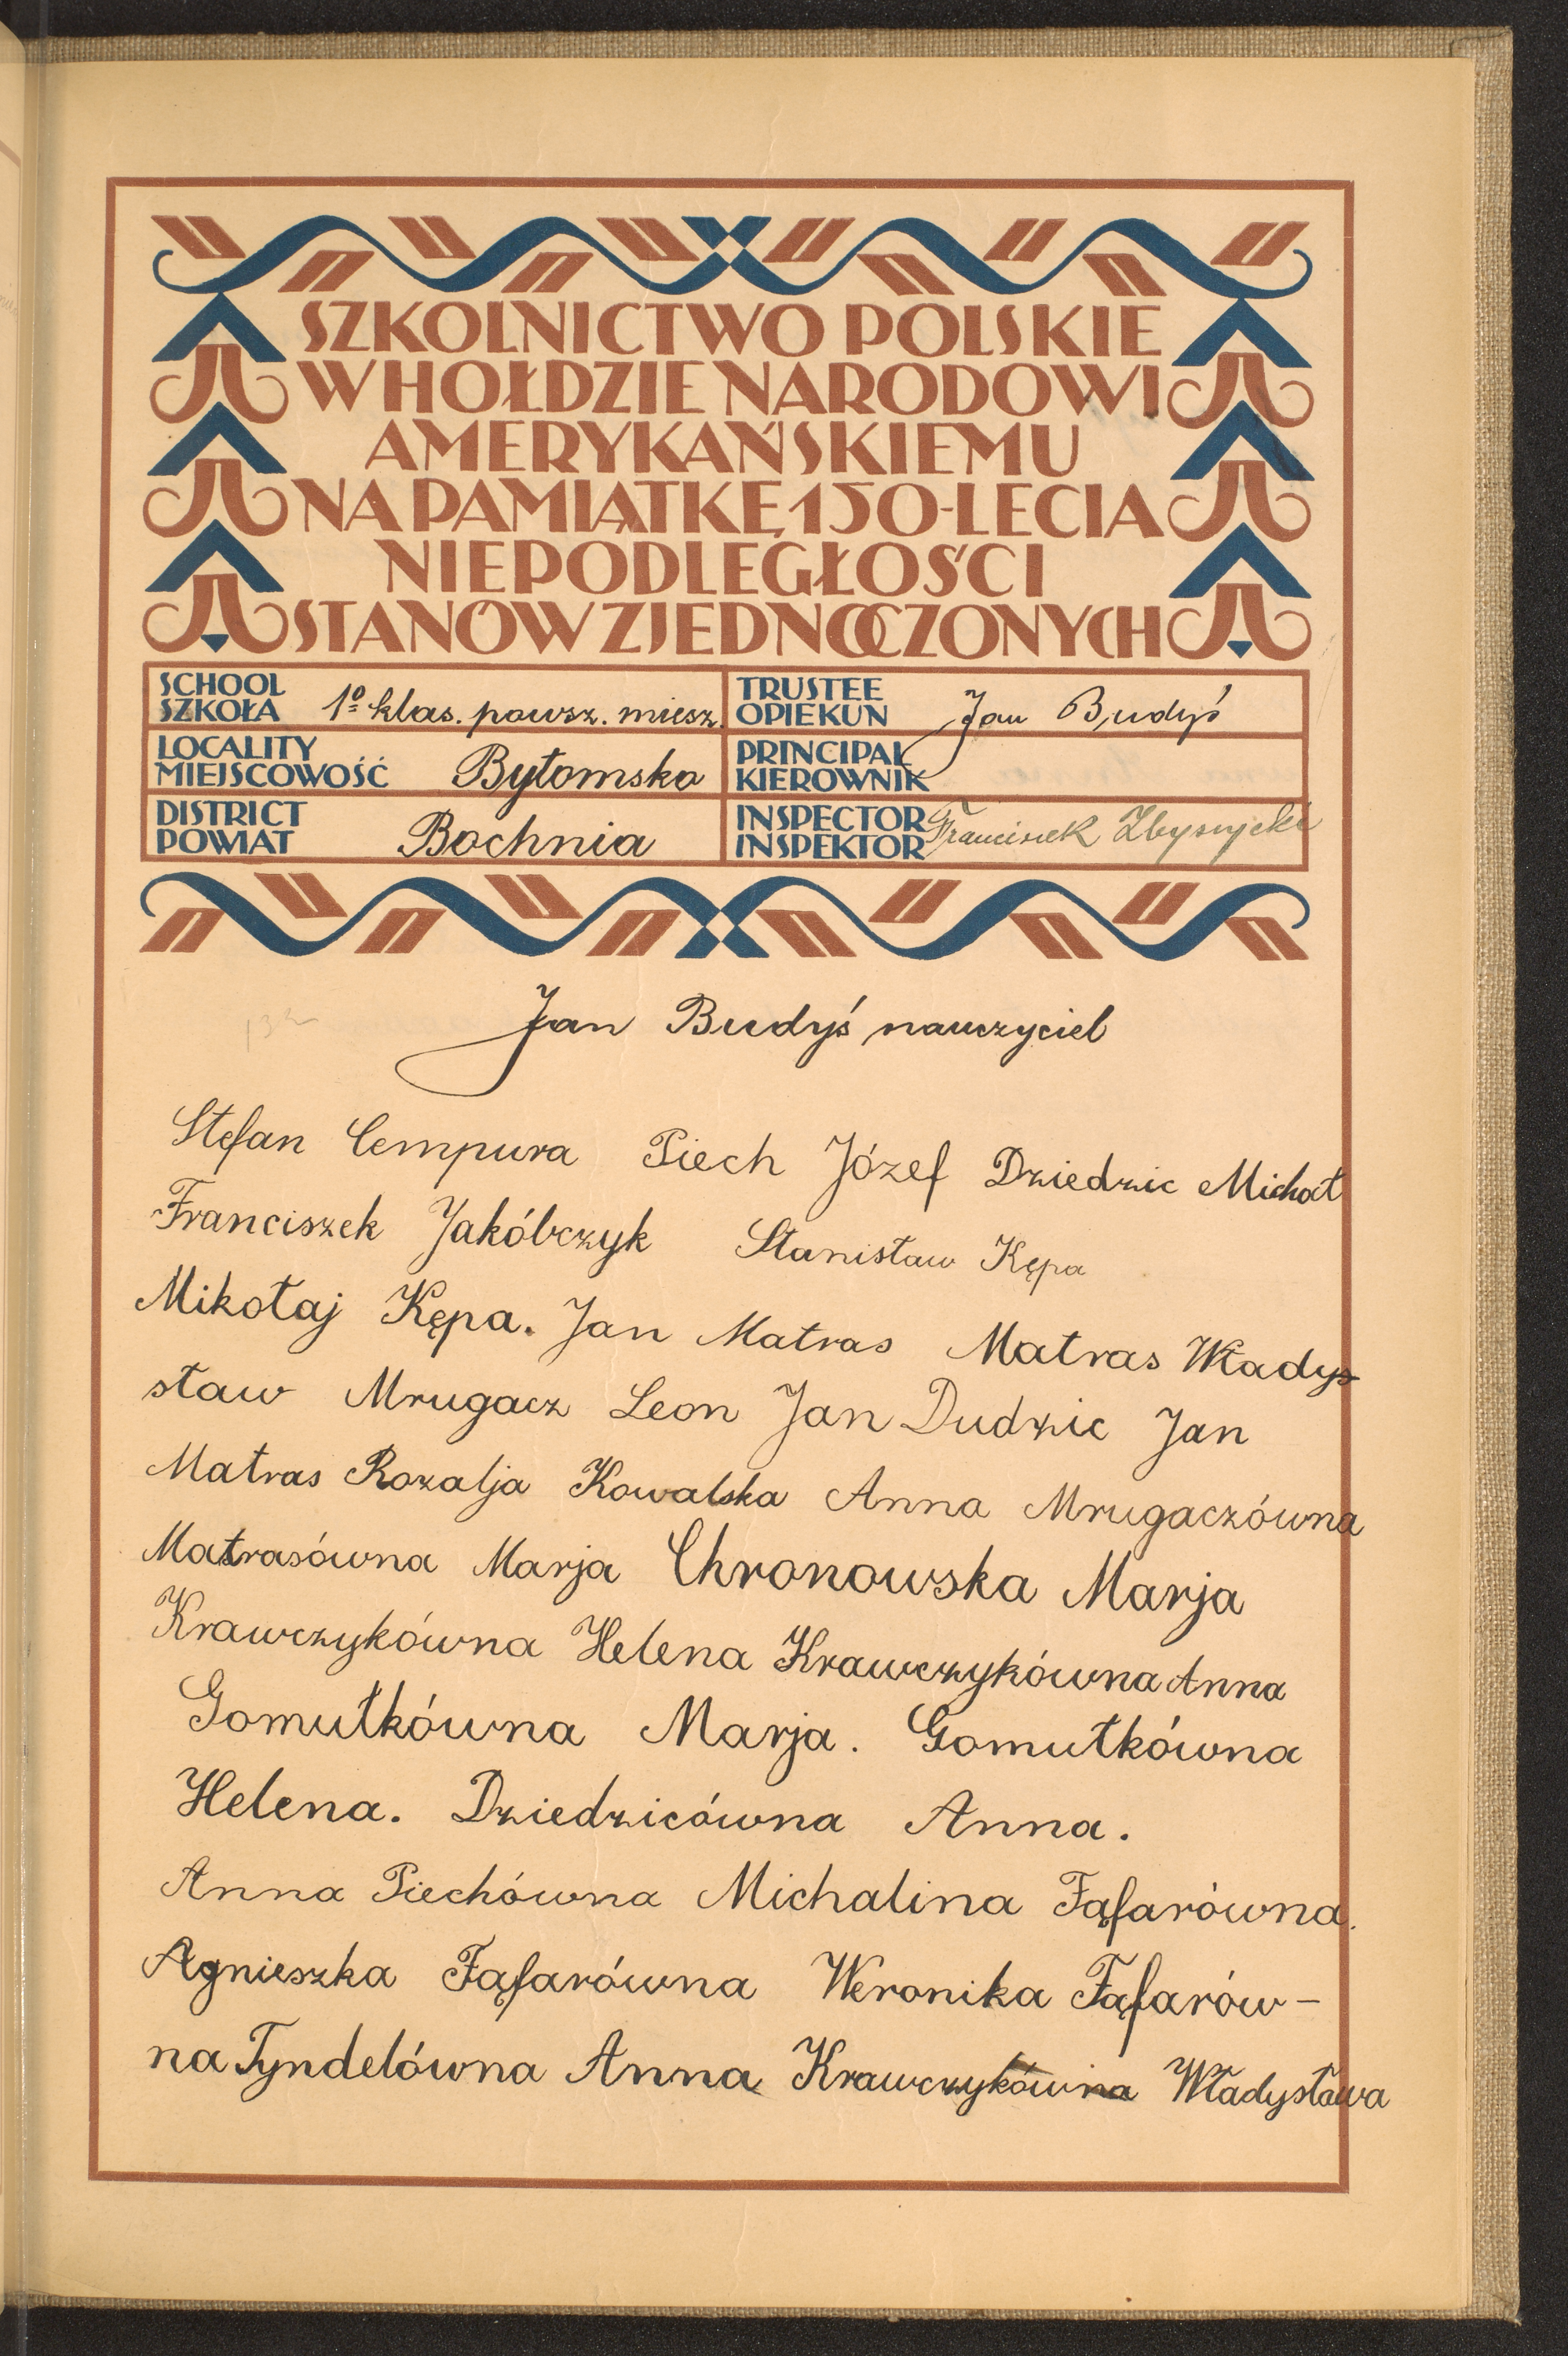 SZKOLNICTWO POLSKIE
W HOŁDZIE NARODOWI
AMERYKAŃSKIEMU
NA PAMIĄTKĘ 150-LECIA
NIEPODLEGŁOŚCI
STANÓW ZJEDNOCZONYCH
SCHOOL
SZKOŁA 1º klas. powsz. miesz.
TRUSTEE
OPIEKUN Jan Budyś
LOCALITY
MIEJSCOWOŚĆ Bytomsko
PRINCIPAL
KIEROWNIK
DISTRICT
POWIAT Bochnia
INSPECTOR
INSPEKTOR Franciszek
132
Jan Budyś nauczyciel
Stefan Cempura Piech Józef Dziedzic Michał
Franciszek Jakóbczyk Stanisław Kępa
Mikołaj Kępa. Jan Matras Matras Władys
sław Mrugacz Leon Jan Dudzic Jan
Matras Rozalja Kowalska Anna Mrugaczówna
Matrasówna Marja Chronowska Marja
Krawczykówna Helena Krawczykówna Anna
Gomułkówna Marja. Gomułkówna
Helena. Dziedzicówna Anna.
Anna Piechówna Michalina Fąfarówna.
Agnieszka Fąfarówna Weronika Fąfarów-
na Tyndelówna Anna Krawczykówna Władysława